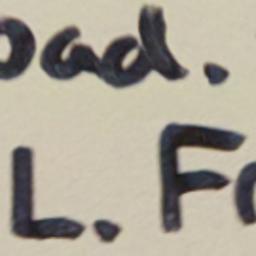 oad.
L. Fo